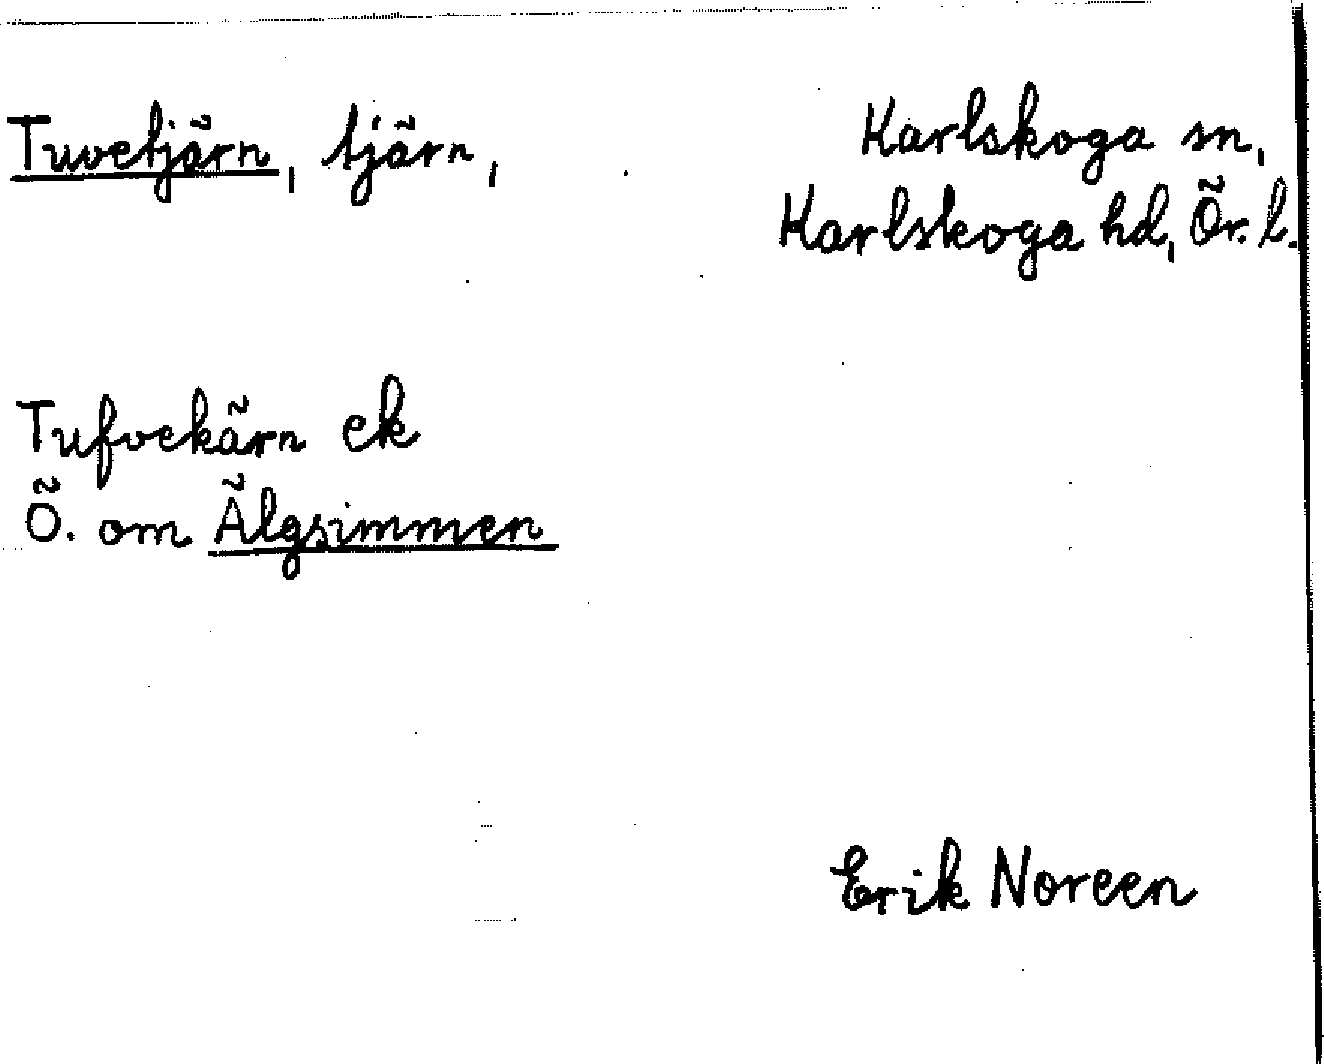 Tuvetjärn, tjärn,
Karlskoga sn,
Karlskoga hd, Ör. l.
Tufvekärn ek
Ö. om Älgsimmen
Erik Noreen